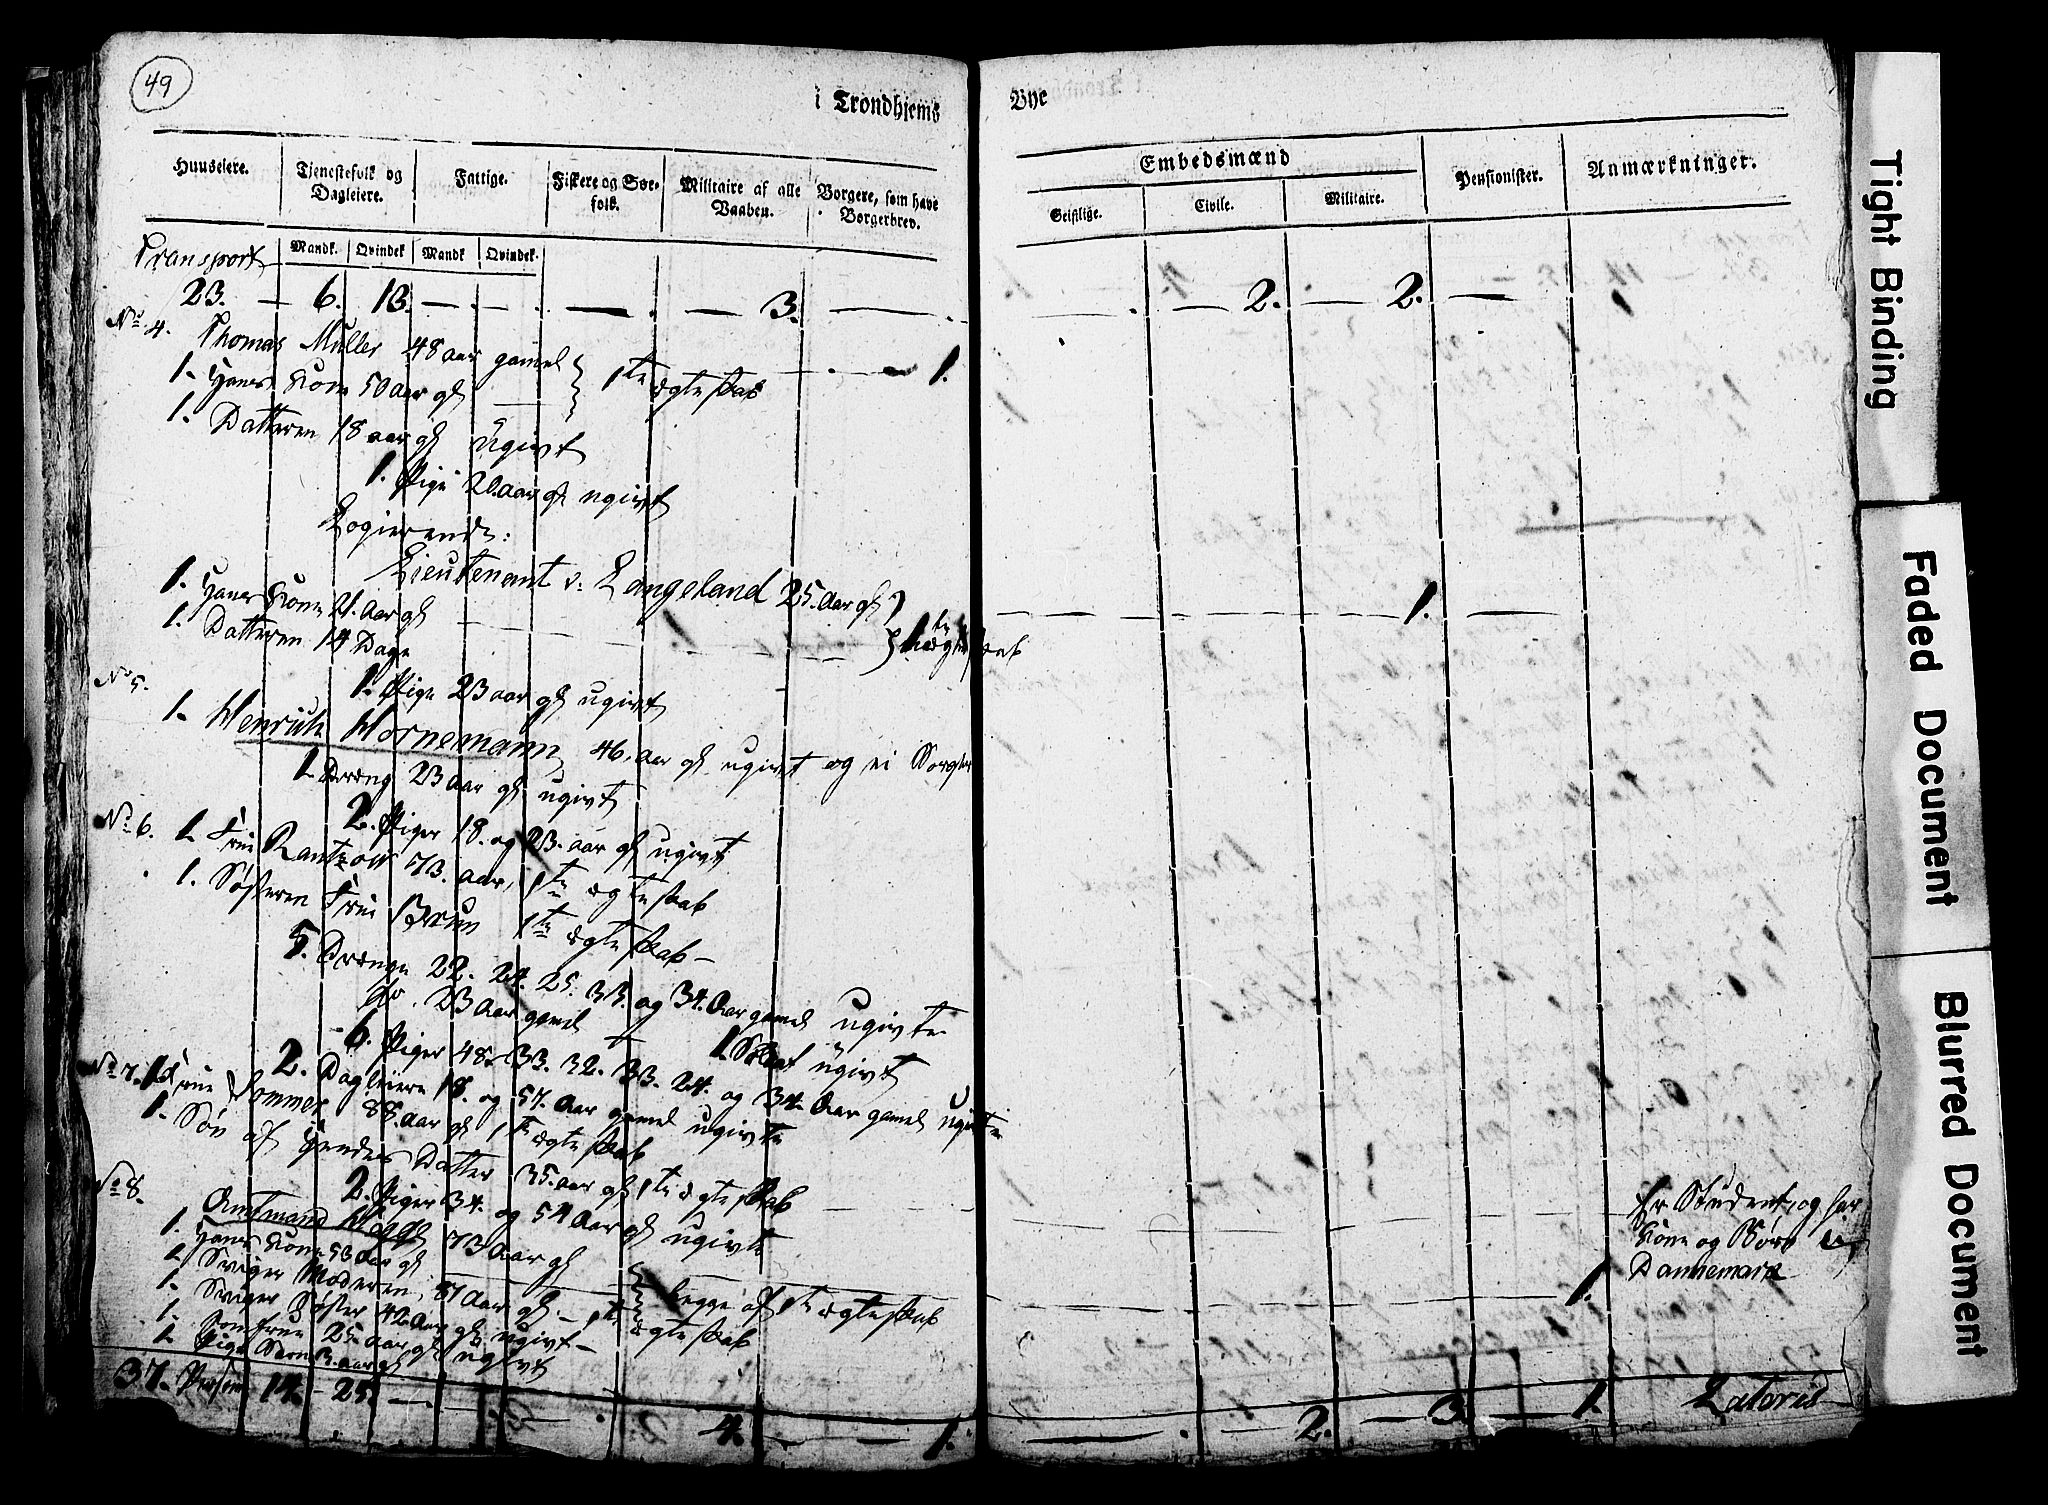 49
i Trondhjems Bye
Huuseiere. Tjenestefolk og Dagleiere. Fattige. Fiskere og Søe-folk. Militaire af alle Vaaben. Borgere, som have Borgerbrev. Embedsmænd Pensionister. Anmærkninger.
Geistlige. Civile. Militaire.
Mandk. Qvindek Mandk Qvindek.
Transport
23. — 6. 13. — 3. — 2. — 2. —
No. 4. Thomas Muller 48 aar gamel
1. Hanes Kone 50 aar gl 1te ægteskab 1.
1. Datteren 18 aar gl ugivt
1. Pige 20. aar gl ugivt
Logierende:
Lieutenant v: Langeland 25. Aar gl
1. Hanes Kone 21. Aar gl 1te ægteskab 1.
1. Datteren 14 Dage
1. Pige 23 aar gl ugivt
No 5.
1. Henrich Hornemann 46. aar gl. ugivt og ei Borger
1 Dreng 23 aar gl ugivt
2. Piger 18. og 23. aar gl ugivt
No. 6. 1. Frue Rantzow 73. aar, 1te ægteskab
1. Søsteren Frue Brun 1te ægteskab —
5. Drenge 22. 24. 25. 33. og 34. Aar gamel ugivte
do. 23 Aar gamel — 1 Soldat ugivt
6. Piger 48. 33. 32. 33. 24. og 34. Aar gamel ugivte
2. Dagleiere 18. og 57. Aar gamel ugivte
No 7. 1. Frue Sommer 88. aar gl 1te ægteskab
1. Søn af Hendes Datter 35. aar gl 1te ægteskab
Er Student, og har Kone og Børn i Dannemark
2. Piger 34. og 54 Aar gl ugivte
No 8.
Amtmand Hagge 73 Aar gl 1.
1. Hanes Kone 53 Aar gl begge af 1te ægteskab
1. Sviger Moderen, 81 Aar gl. — 1te ægteskab
1. Sviger Søster 42 Aar gl ugivt —
1. Jomfrue 25. aar gl ugivt
1. Pige Barn 3. aar gl
37. Persone 14. — 25. — 4. — 1. — 2. — 3. — 1. Lateris
Tight Binding
Faded Document
Blurred Document